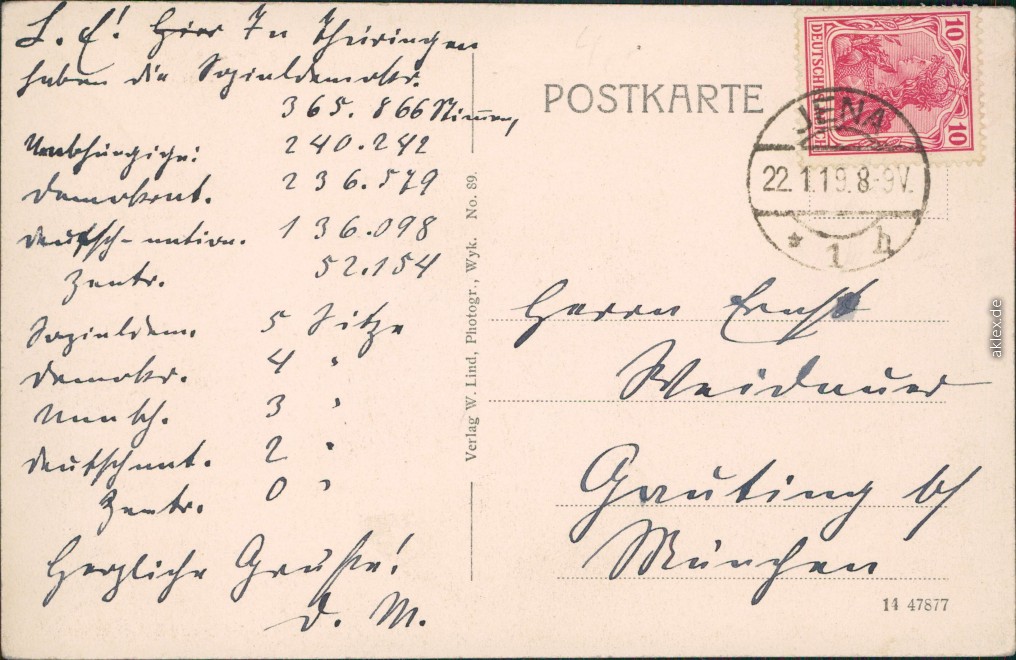 L. E.! Hier In Thüringen
haben die Sozialdemokr.
365.866 Stimmen,
Unabhängige: 240.242
Demokrat. 236.579
deutsch-nation. 136.098
Zentr. 52.154
Sozialdem. 5 Sitze
Demokr. 4 "
Unabh. 3 "
deutschnat. 2 "
Zentr. 0 "
Herzliche Grüße!
D. M.
Verlag W. Lind, Photogr., Wyk. No. 89.
POSTKARTE
DEUTSCHES REICH
10
10
JENA
22.1.19.8-9V.
* 1 h
Herrn Ernst
Weidauer
Gauting b/
München
14 47877
aklex.de